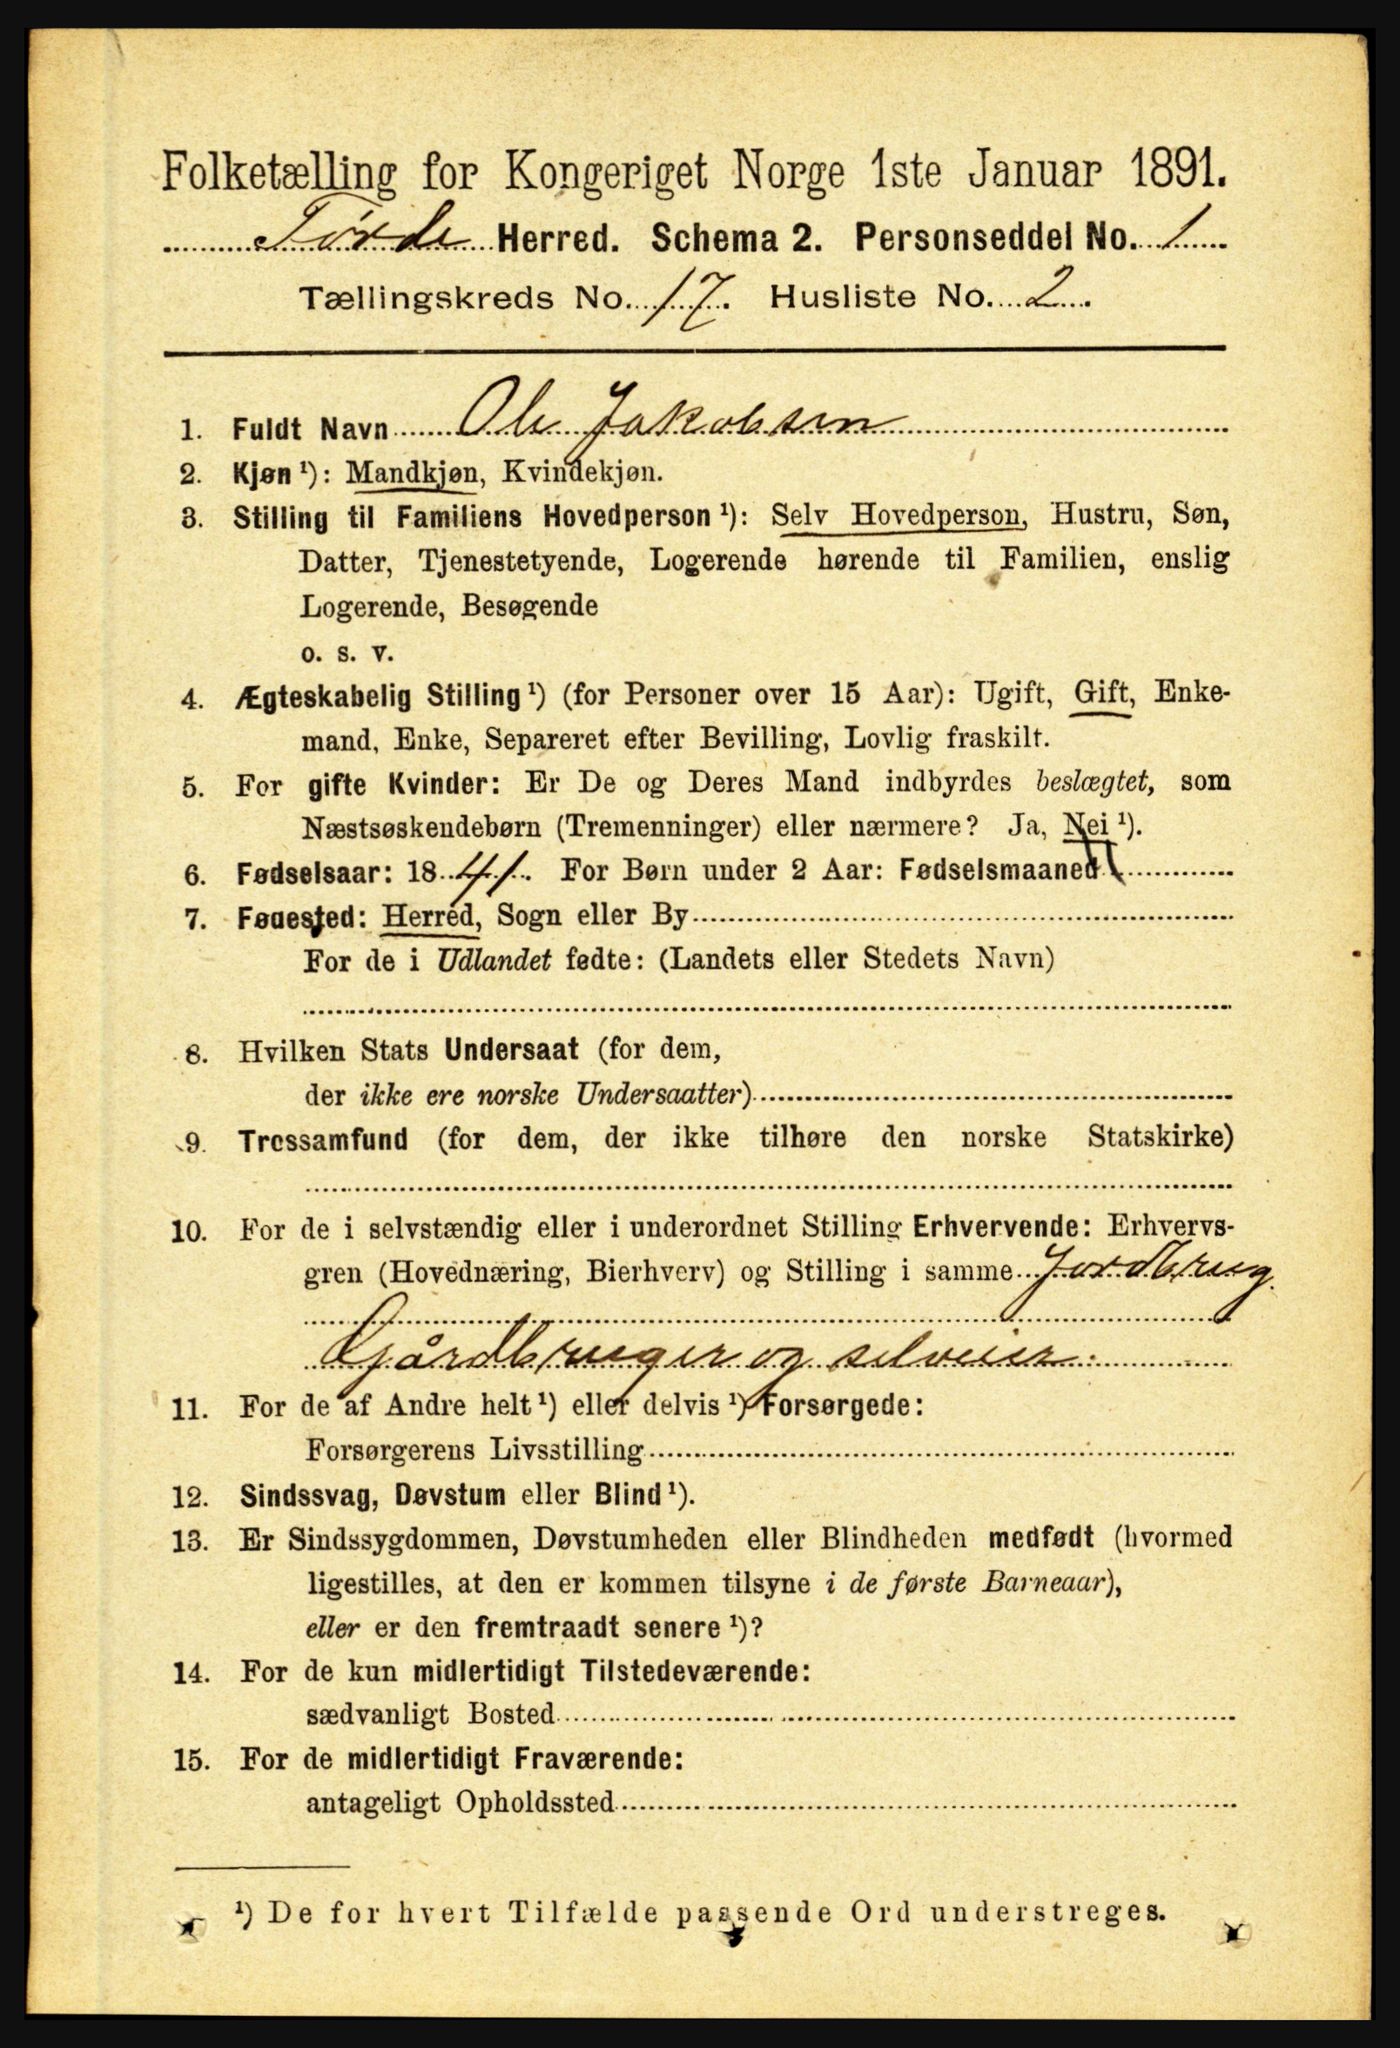 Folketælling for Kongeriget Norge 1ste Januar 1891.
Førde Herred. Schema 2. Personseddel No. 1
Tællingskreds No. 17. Husliste No. 2.
1. Fuldt Navn Ole Jakobsen
2. Kjøn ¹): Mandkjøn, Kvindekjøn.
3. Stilling til Familiens Hovedperson ¹): Selv Hovedperson, Hustru, Søn,
Datter, Tjenestetyende, Logerende hørende til Familien, enslig
Logerende, Besøgende
o. s. v.
4. Ægteskabelig Stilling ¹) (for Personer over 15 Aar): Ugift, Gift, Enke-
mand, Enke, Separeret efter Bevilling, Lovlig fraskilt.
5. For gifte Kvinder: Er De og Deres Mand indbyrdes beslægtet, som
Næstsøskendebørn (Tremenninger) eller nærmere? Ja, Nei ¹).
6. Fødselsaar: 1841. For Børn under 2 Aar: Fødselsmaaned
7. Fødested: Herred, Sogn eller By
For de i Udlandet fødte: (Landets eller Stedets Navn)
8. Hvilken Stats Undersaat (for dem,
der ikke ere norske Undersaatter)
9. Trossamfund (for dem, der ikke tilhøre den norske Statskirke)
10. For de i selvstændig eller i underordnet Stilling Erhvervende: Erhvervs-
gren (Hovednæring, Bierhverv) og Stilling i samme Jordbrug.
Gjårdbruger og selveier.
11. For de af Andre helt ¹) eller delvis ¹) Forsørgede:
Forsørgerens Livsstilling
12. Sindssvag, Døvstum eller Blind ¹).
13. Er Sindssygdommen, Døvstumheden eller Blindheden medfødt (hvormed
ligestilles, at den er kommen tilsyne i de første Barneaar),
eller er den fremtraadt senere ¹)?
14. For de kun midlertidigt Tilstedeværende:
sædvanligt Bosted
15. For de midlertidigt Fraværende:
antageligt Opholdssted
¹) De for hvert Tilfælde passende Ord understreges.